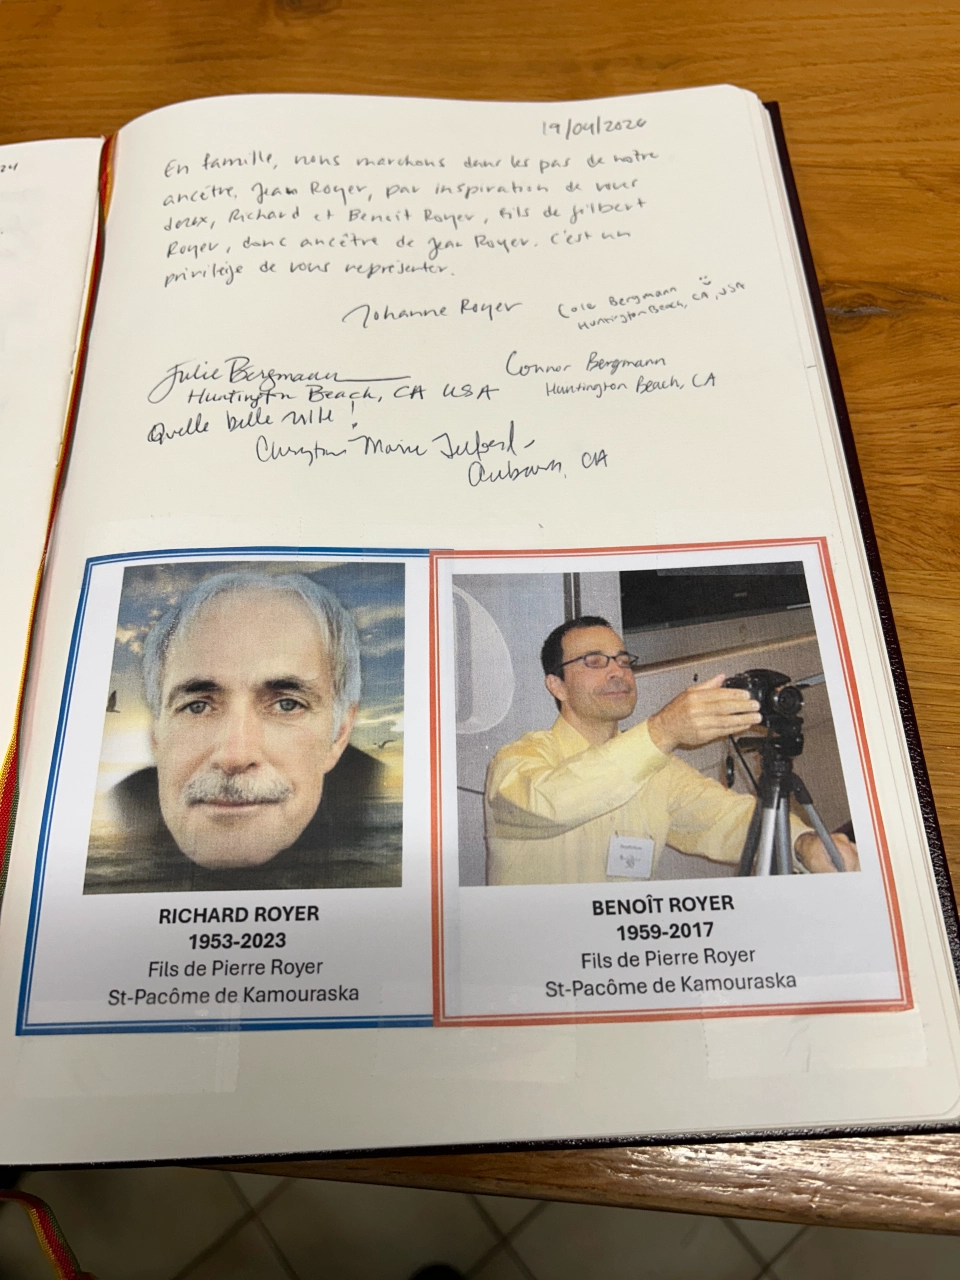 24
19/04/2026
En famille, nous marchons dans les pas de notre
ancêtre, Jean Royer, par inspiration de vous
deux, Richard et Benoît Royer, fils de Gilbert
Royer, donc ancêtre de Jean Royer. C'est un
privilège de vous représenter.
Johanne Royer
Cole Bergmann
Huntington Beach, CA, USA
Julie Bergmann
Huntington Beach, CA USA
Quelle belle ville !
Connor Bergmann
Huntington Beach, CA
Marie
Auburn, CA
RICHARD ROYER
1953-2023
Fils de Pierre Royer
St-Pacôme de Kamouraska
BENOÎT ROYER
1959-2017
Fils de Pierre Royer
St-Pacôme de Kamouraska